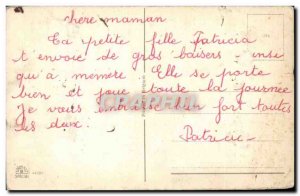 chere maman
Ta petite fille Patricia
t envoie de gros baisers insi
qu'à memete Elle se porte
bien et joue toute la journee
Je vous embrasse bien fort toutes
les deux.
Patricie